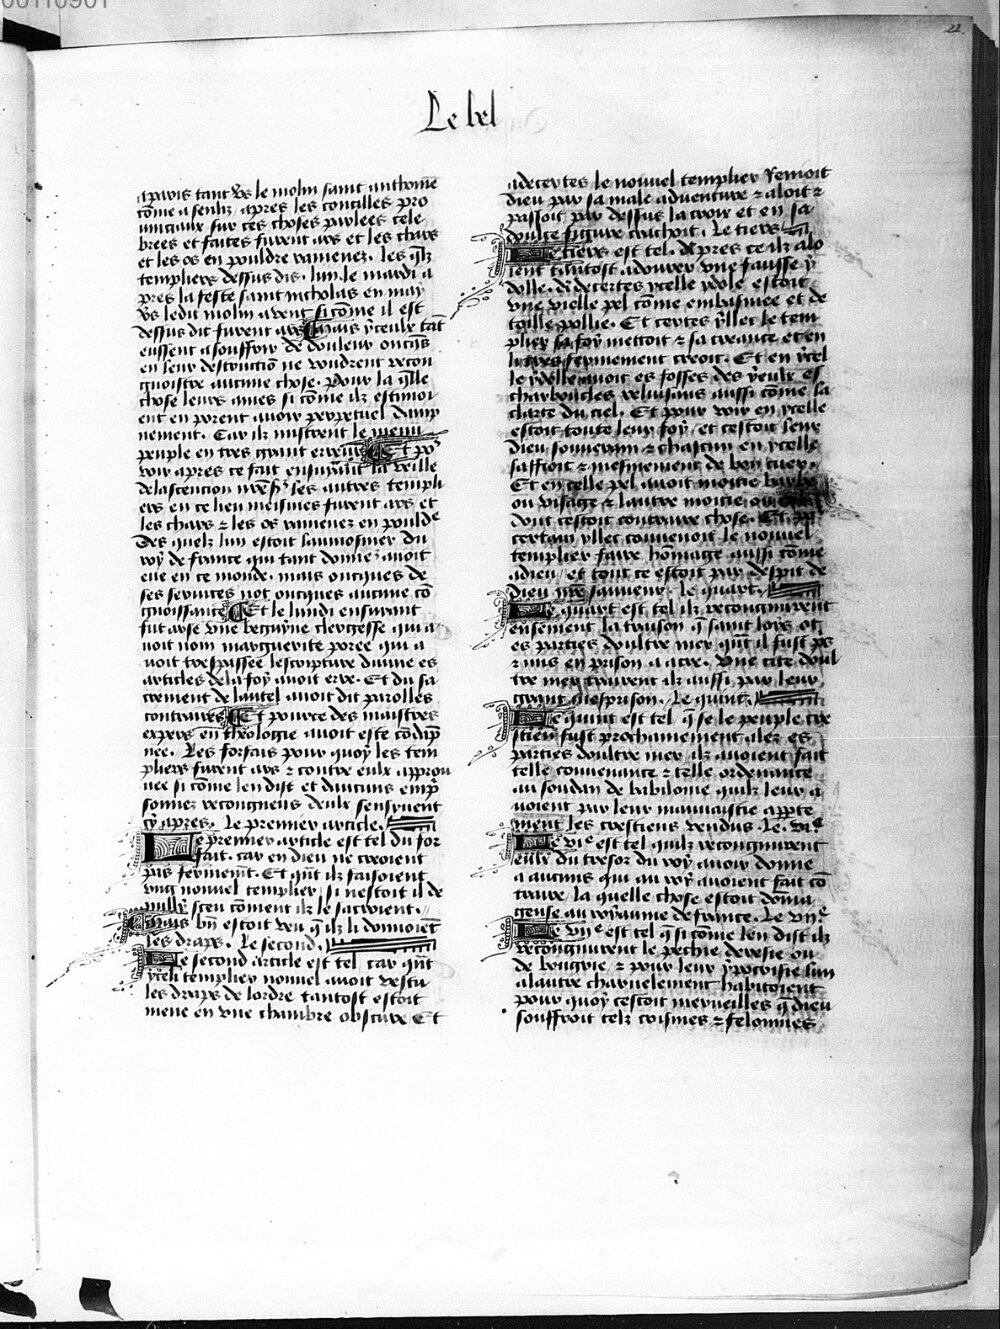 22
Le bel
a paris tant vs le molin saint anthoine
cōme a senliz apres les concilles pro
uinciaux sur ces choses parlees cele
brees et faites furent ars et les chars
et les os en pouldre ramenez. les qlz
templiers dessus dis. lun le mardi a
pres la feste saint nicholas en may
vs ledit molin a vent si cōme il est
dessus dit furent ars Mais yceulx tāt
eussent a souffrir de douleur oncqs
en leur destructiō ne vouldrent recon
gnoistre aucune chose. Pour la qlle
chose leurs ames si cōme ilz estimoi
ent en porent auoir perpetuel damp
nement. Car ilz mistrent le menu
peuple en tres grant erreur Et po
voir apres ce fait ensuyuāt la veille
delascention les autres templi
ers en ce lieu meismes furent ars et
les chars ⁊ les os ramenez en pould
Des quelz lun estoit laumosnier du
roy de france qui tant donne auoit
eue en ce monde. mais oncques de
ses seruices not oncques aucune cō
gnoissance Et le lundi ensuiuant
fut arse vne beguyne clergesse qui a
uoit nom marguerite poree qui a
uoit trespassee lescripture diuine es
articles dela foy auoit erre. Et du sa
crement de lautel auoit dit parolles
contraires Et pource des maistres
expers en theologie auoit este cōdāp
nee. Les forfais pour quoy les tem
pliers furent ars ⁊ contre eulx approu
uez si cōme len dist et daucuns emp
sonnez recongneus deulx sensyuent
cy apres. Le premier article.
Le premier article est tel du for
fait. car en dieu ne creoient
pas fermemt. Et qnt ilz faisoient
vng nouuel templier, si nestoit il de
nully sceu cōment ilz le sacroient.
Mais bn estoit veu q ilz li donnoiēt
les draps. Le second.
Le second article est tel car qnt
templier nouuel auoit vestu
les draps de lordre tantost estoit
mene en vne chambre obscure Et
adecertes le nouuel templier renioit
dieu par sa male aduenture ⁊ aloit ⁊
passoit par dessus la croix et en sa
doulce figure crachoit. Le tiers
Le tiers est tel. Apres ce ilz alo
ient tantost adourer vne faulse y
dolle. Adecertes ycelle ydole estoit
vne vielle pel cōme embasmee et de
toille pollie. Et certes yllec le tem
plier sa foy mettoit ⁊ sa creance et en
li tres fermement creoit. Et en ycel
le ydolle auoit es fosses des yeulx es
charboucles reluisans aussi cōme la
clarte du ciel. Et pour voir en ycelle
estoit toute leur foy, et cestoit leur
dieu souuerain ⁊ chascun en ycelle
saffioit ⁊ mesmement de bon cuer.
Et en celle pel auoit moitie barbe
ou visage ⁊ lautre moitie ou
dont cestoit contraire chose. Et
certain yllec conuenoit le nouuel
templier faire hōmage aussi cōme
adieu, et tout ce estoit par despit de
dieu nre sauueur. Le quart.
Le quart est tel ilz recongnurent
ensement la traison q saint loys ot
es parties doultre mer qnt il fust ps
⁊ mis en prison a acre. Vne cite doul
tre mer trairent ilz aussi par leur
grant mesprison. Le quint.
Le quint est tel q se le peuple cre
stien fust prochainement alez es
parties doultre mer ilz auoient fait
telle conuenance ⁊ telle ordenance
au soudan de babilonie quilz leur a
uoient par leur mauuaistie apperte
ment les crestiens vendus. Le. vie
Le vie est tel quilz recongnurent
eulx du tresor du roy auoir donne
a aucuns qui au roy auoient fait cō
traire, la quelle chose estoit dōma
geuse au royaume de france. Le viie
Le viie est tel q si cōme len dist ilz
recongnurent le pechie deresie ou
de bougrie, ⁊ pour leur ypocrisie lun
alautre charnelement habitoient
pour quoy cestoit merueilles q dieu
souffroit telz crismes ⁊ felonnies